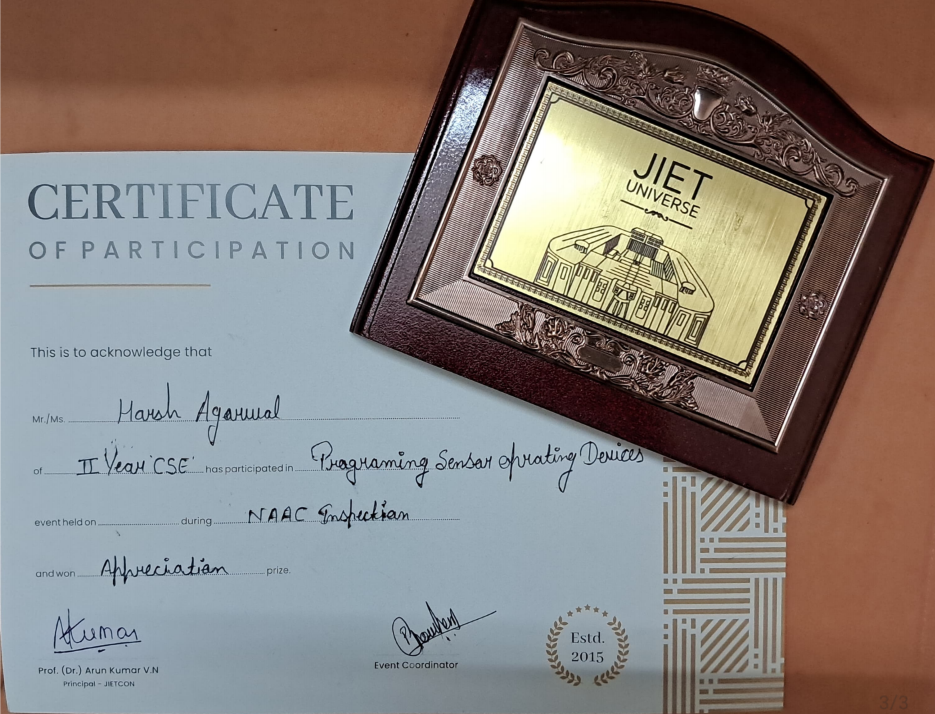 JIET
UNIVERSE
CERTIFICATE
OF PARTICIPATION
This is to acknowledge that
Mr./Ms. Harsh Agarwal
of II Year 'CSE' has participated in Programing Sensor oprating Devices
event held on during NAAC Inspection
and won Appreciation prize.
AKumar
Prof. (Dr.) Arun Kumar V.N
Principal - JIETCON
Event Coordinator
Estd.
2015
3/3